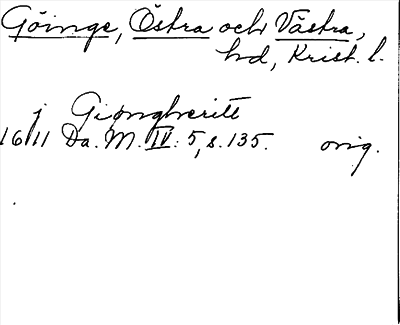 Göinge, Östra och Västra,
hd, Krist. l.
j Gionghveritt
1611 Da. M. IV: 5, s. 135. orig.